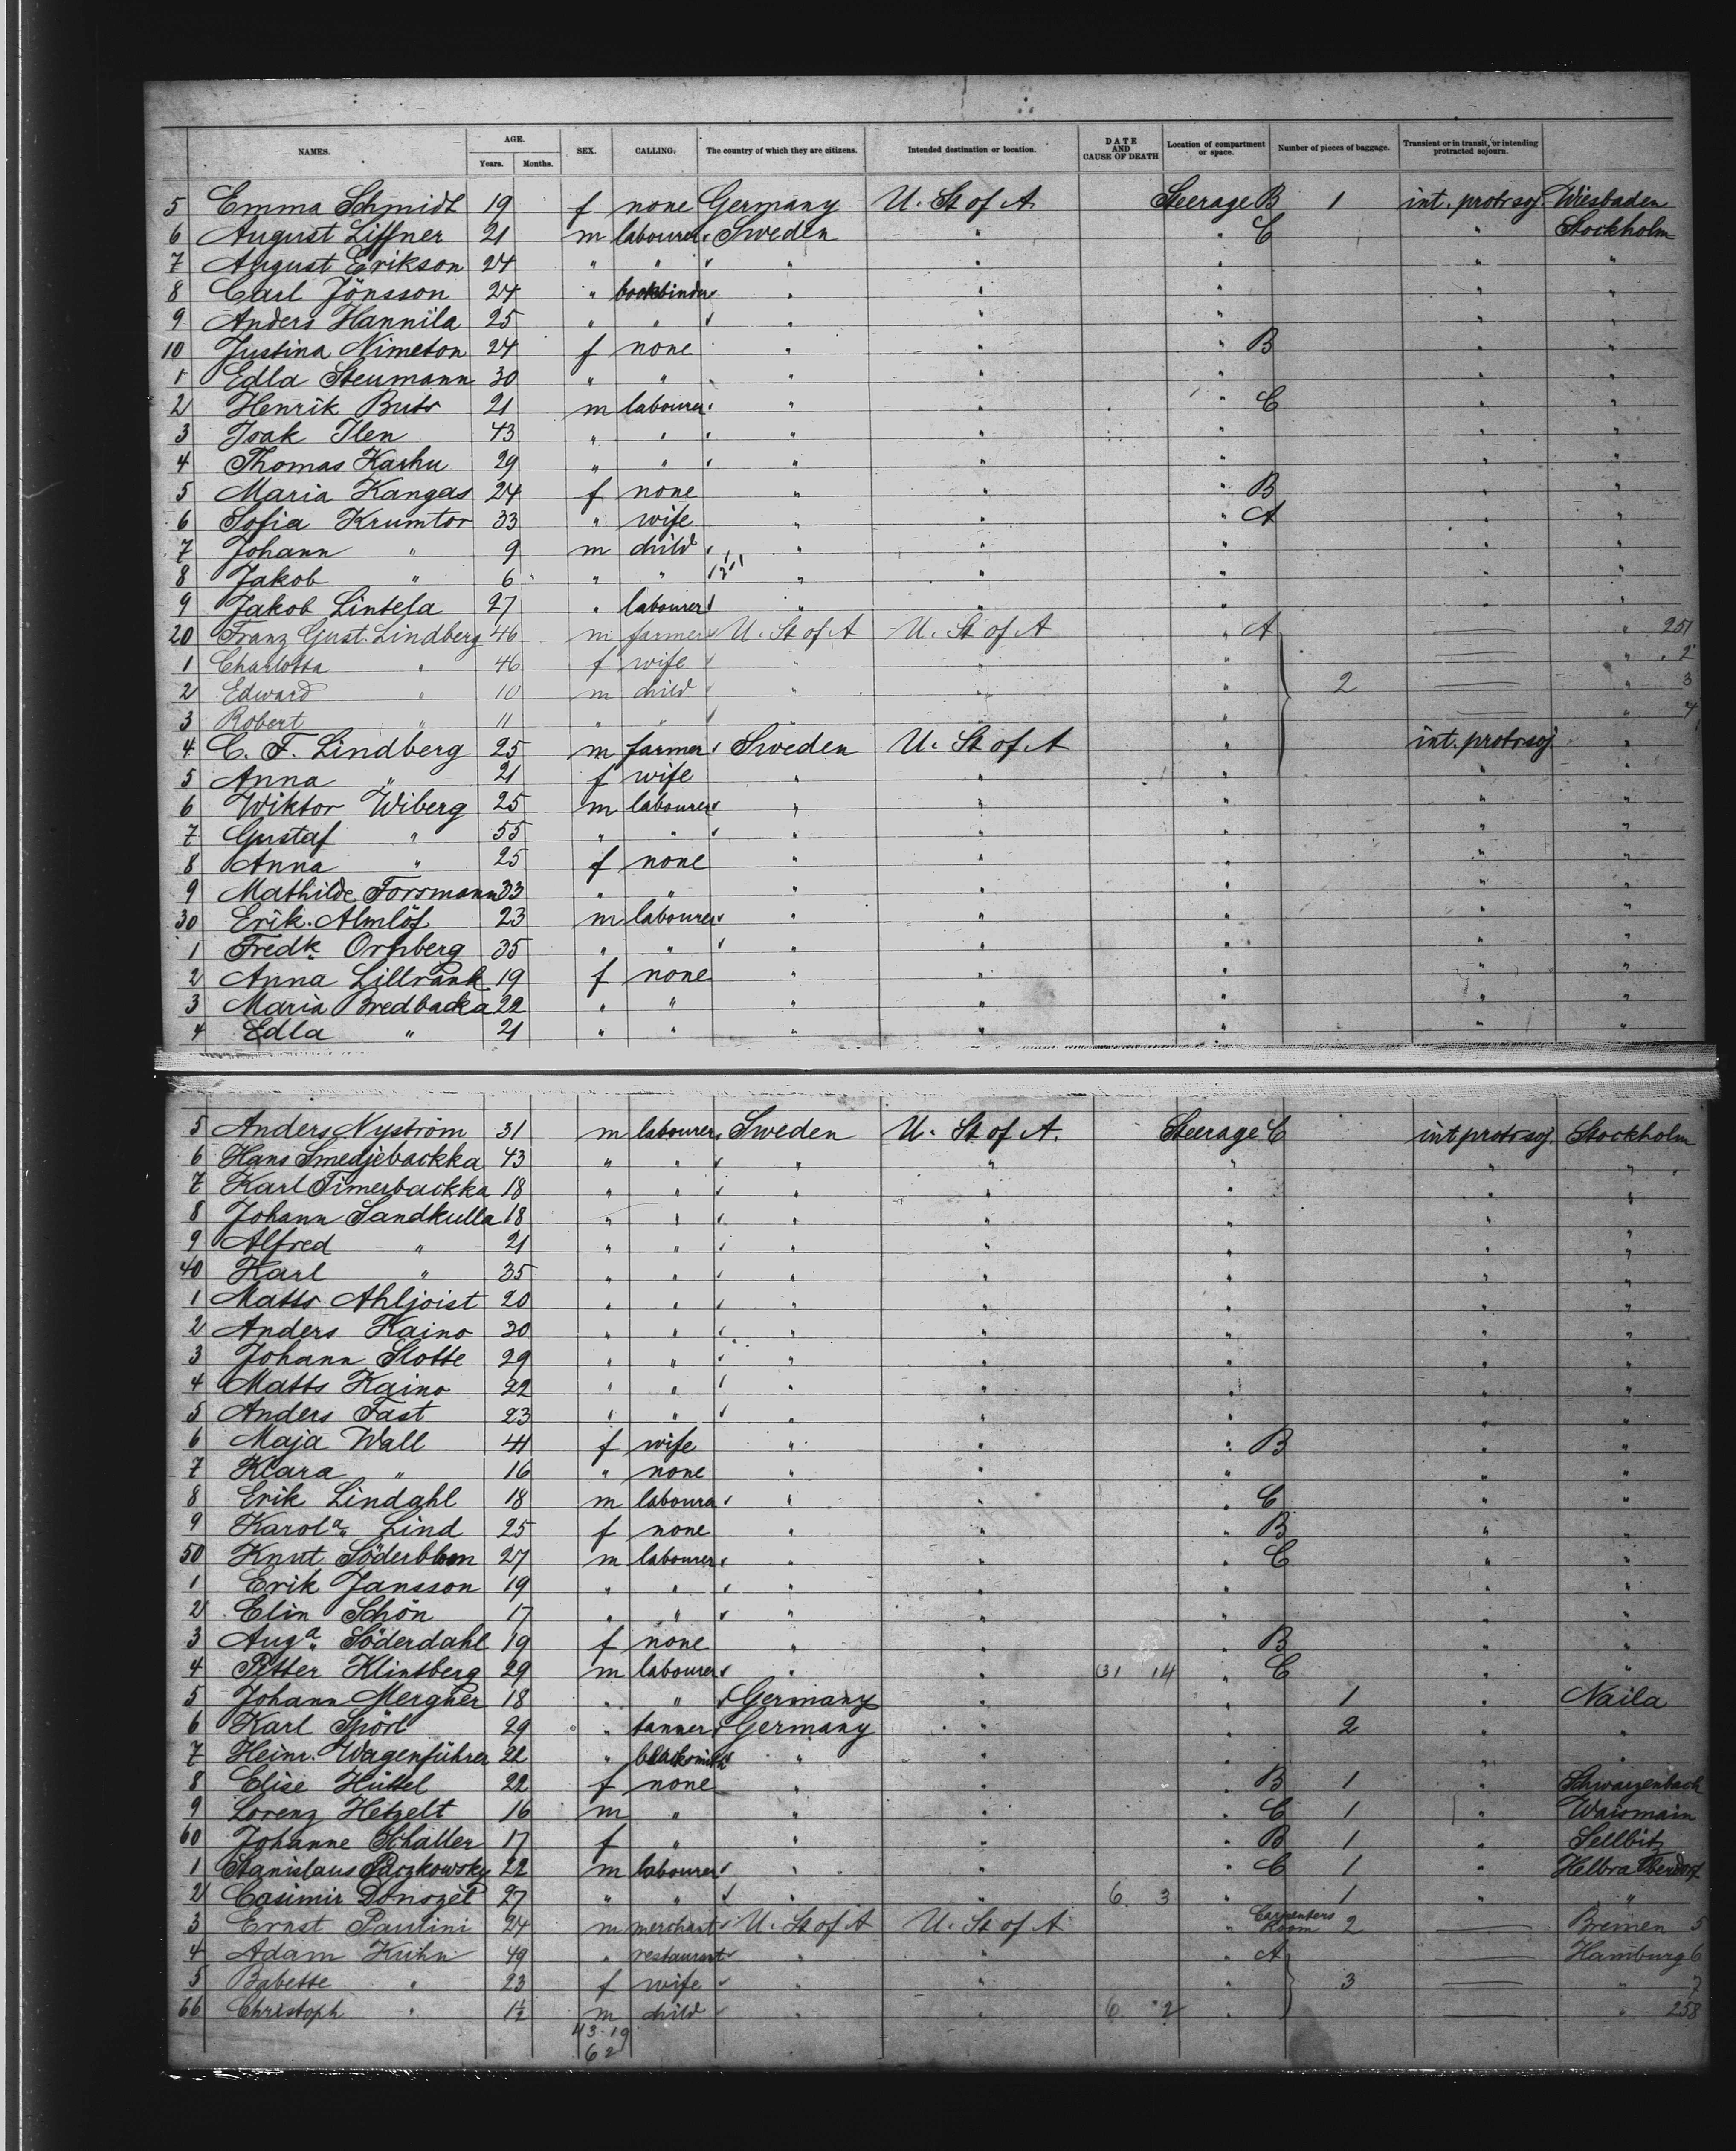 NAMES. AGE. Years. Months. SEX. CALLING. The country of which they are citizens. Intended destination or location. DATE AND CAUSE OF DEATH Location of compartment or space. Number of pieces of baggage. Transient or in transit, or intending protracted sojourn.
5 Emma Schmidt 19 f none Germany U. St of A Steerage B 1 int. protr soj. Wiesbaden
6 August Liffner 21 m labourer Sweden " " C " Stockholm
7 August Erikson 24 " " " " " " "
8 Carl Jönsson 24 " bookbinder " " " " "
9 Anders Hannila 25 " " " " " " "
10 Justina Nimeton 24 f none " " " B " "
1 Edla Steumann 30 " " " " " " "
2 Henrik Buts 21 m labourer " " " C " "
3 Isak Ilen 43 " " " " " " "
4 Thomas Karhu 29 " " " " " " "
5 Maria Kangas 24 f none " " " B " "
6 Sofia Krumtor 33 " wife " " " A " "
7 Johann " 9 m child " " " " "
8 Jakob " 6 " " " " " " "
9 Jakob Lintela 27 " labourer " " " " "
20 Franz Gust. Lindberg 46 m farmer U. St of A U. St of A " A — " 251
1 Charlotta " 46 f wife " " " — " 2
2 Edward " 10 m child " " " 2 — " 3
3 Robert " 11 " " " " " — " 4
4 C. F. Lindberg 25 m farmer Sweden U. St of A " int. protr soj. "
5 Anna " 21 f wife " " " " "
6 Wiktor Wiberg 25 m labourer " " " " "
7 Gustaf " 55 " " " " " " "
8 Anna " 25 f none " " " " "
9 Mathilde Forsmann 33 " " " " " " "
30 Erik Almlöf 23 m labourer " " " " "
1 Fredk. Ornberg 35 " " " " " " "
2 Anna Lillrank 19 f none " " " " "
3 Maria Bredbacka 22 " " " " " " "
4 Edla " 21 " " " " " " "
5 Anders Nyström 31 m labourer Sweden U. St of A. Steerage C int protr soj. Stockholm
6 Hans Smedjebackka 43 " " " " " " "
7 Karl Timerbackka 18 " " " " " " "
8 Johann Sandkulla 18 " " " " " " "
9 Alfred " 21 " " " " " " "
40 Karl " 35 " " " " " " "
1 Matts Ahljoist 20 " " " " " " "
2 Anders Kaino 30 " " " " " " "
3 Johann Slotte 29 " " " " " " "
4 Matts Kaino 22 " " " " " " "
5 Anders Fast 23 " " " " " " "
6 Maja Wall 41 f wife " " " B " "
7 Klara " 16 " none " " " " "
8 Erik Lindahl 18 m labourer " " " C " "
9 Karola Lind 25 f none " " " B " "
50 Knut Söderblom 27 m labourer " " " C " "
1 Erik Jansson 19 " " " " " " "
2 Elin Schön 17 " " " " " " "
3 Auga Söderdahl 19 f none " " " B " "
4 Petter Klintberg 29 m labourer " " 31 14 " C " "
5 Johann Mergner 18 " " Germany " " 1 " Naila
6 Karl Spörl 29 " tanner Germany " " 2 " "
7 Heinr. Wagenführer 22 " blacksmith " " " " "
8 Elise Hüttel 22 f none " " " B 1 " Schwarzenbach
9 Lorenz Hetzelt 16 m " " " " C 1 " Waismain
60 Johanne Schaller 17 f " " " " B 1 " Sellbitz
1 Stanislaus Paczkowsky 22 m labourer " " " C 1 " Helbra Oberdorf
2 Casimir Donozet 27 " " " " 6 3 " 1 " "
3 Ernst Paulini 24 m merchant U. St of A U. St of A " Carpenters Room 2 — Bremen 5
4 Adam Kuhn 49 " restaurant " " " A — Hamburg 6
5 Babette " 23 f wife " " " 3 — " 7
66 Christoph " 1½ m child " " 6 2 " — " 258
43.19
62